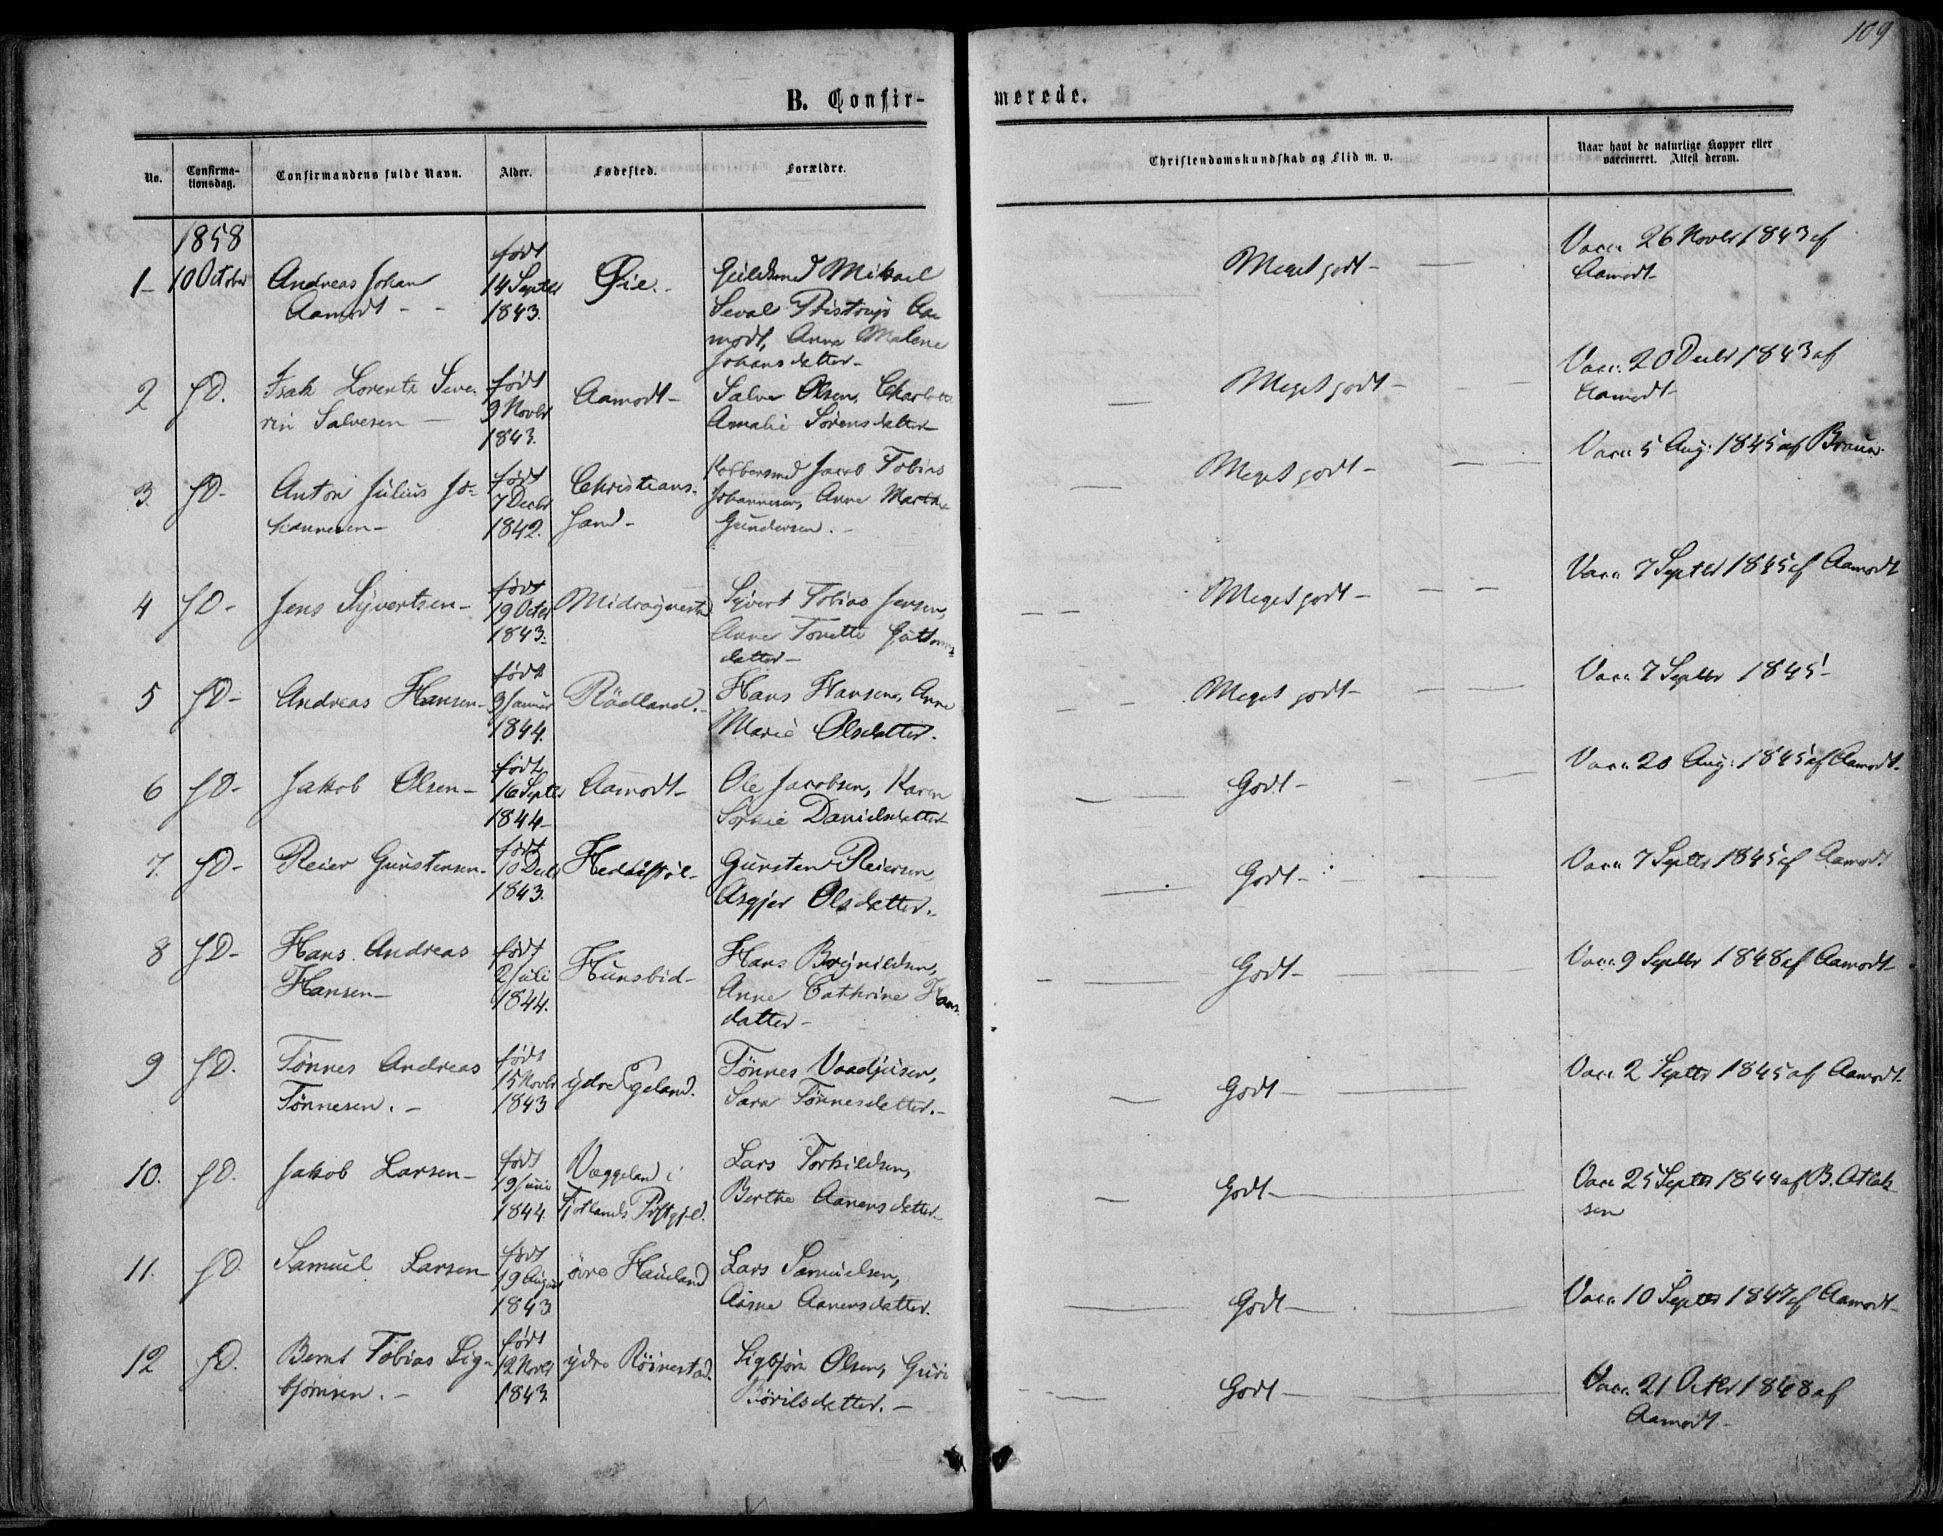 109
B. Confir-
merede.
No.
Confirma-
tionsdag.
Confirmandens fulde Navn.
Alder.
Fødested.
Forældre.
Christendomskundskab og Flid m. v.
Naar havt de naturlige Kopper eller
vaccineret. Attest derom.
1858
1- 10 October Andreas Johan
Aamodt - -
født
14 Septbr
1843.
Øie. -
Mikael
Seval Pristrup Aa
modt, Anne Malene
Johansdatter-
Meget godt -
Vacc. 26 Novbr 1843 af
Aamodt-
2 hD. Isak Lorentz Seve-
rin Salvesen -
født
9 Novbr
1843.
Aamodt-
Salve Olsen, Charlotte
Amalie Sørensdatter-
Meget godt -
Vacc. 20 Decbr 1843 af
Aamodt-
3. hD- Anton Julius Jo-
hannesen-
født
7 Decbr
1842.
Christians-
sand-
Kobbersmed Jacob Tobias
Johannesen, Anne Marthe
Gundersen. -
Meget godt -
Vacc 5 Aug: 1845 af Braun-
4 hD- Jens Syvertsen-
født
19 Octbr
1843.
Syvert Tobias Jensen,
Anne Tonette Guttorms-
datter-
Meget godt -
Vacc 7 Septbr 1845 af Aamodt
5 hD- Andreas Hansen-
født
9 Januar
1844.
Rødland.-
Hans Hansen, Anne
Marie Olsdatter.
Meget godt-
Vacc 7 Septbr 1845-
6 hD- Jakob Olsen-
født
16 Septbr
1844-
Aamodt-
Ole Jacobsen, Karen
Sophie Danielsdatter-
Godt -
Vacc 20 Aug: 1845 af Aamodt-
7. hD- Reier Gunstensen-
født
10 Decbr
1843.
Gunsten Reiersen,
Asgjer Olsdatter.
Godt -
Vacc 7 Septbr 1845 af Aamodt
8 hD- Hans Andreas
Hansen-
født
2 Juli
1844.
Hunsbid-
Hans Brynildsen,
Anne Cathrine Hans
datter-
Godt-
Vacc 9 Septbr 1848 af Aamodt-
9 hD. Tønnes Andreas
Tønnesen. -
født
15 Novbr
1843
ydre Egeland.
Tønnes Vradjusen,
Sara Tønnesdatter.-
Godt -
Vacc 2 Septbr 1845 af Aamodt-
10. hD. Jakob Larsen-
født
19 Juni
1844.
Væggeland i
Fjotlands Præstgjeld.
Lars Torkildsen,
Berthe Aanensdatter-
Godt-
Vacc 25 Septbr 1844 af B. Atlak
sen
11. hD. Samuel Larsen-
født
19 August
1843
øvre Haueland
Lars Samuelsen,
Aasne Aanensdatter.
Godt-
Vacc 10 Septbr 1847 af Aamodt-
12 hD. Bernt Tobias Sig-
bjørnsen. -
født
12 Novbr
1843
ydre Røinestad.
Sigbjørn Olsen, Guri
Børilsdatter. -
Godt -
Vacc. 21 Octbr 1848 af
Aamodt-